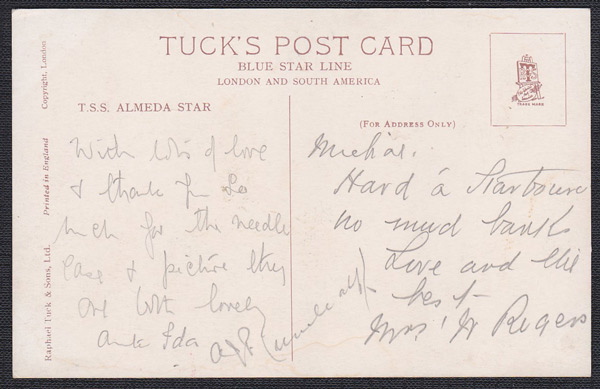 TUCK'S POST CARD
BLUE STAR LINE
LONDON AND SOUTH AMERICA
T.S.S. ALMEDA STAR
(FOR ADDRESS ONLY)
TRADE MARK
Copyright, London
Printed in England
Raphael Tuck & Sons, Ltd.
With lots of love
& thank you so
much for the needle
case & picture they
are both lovely
Ida
Hard á Starboure
no mud banks
Love and the
best
Mrs W Rogers